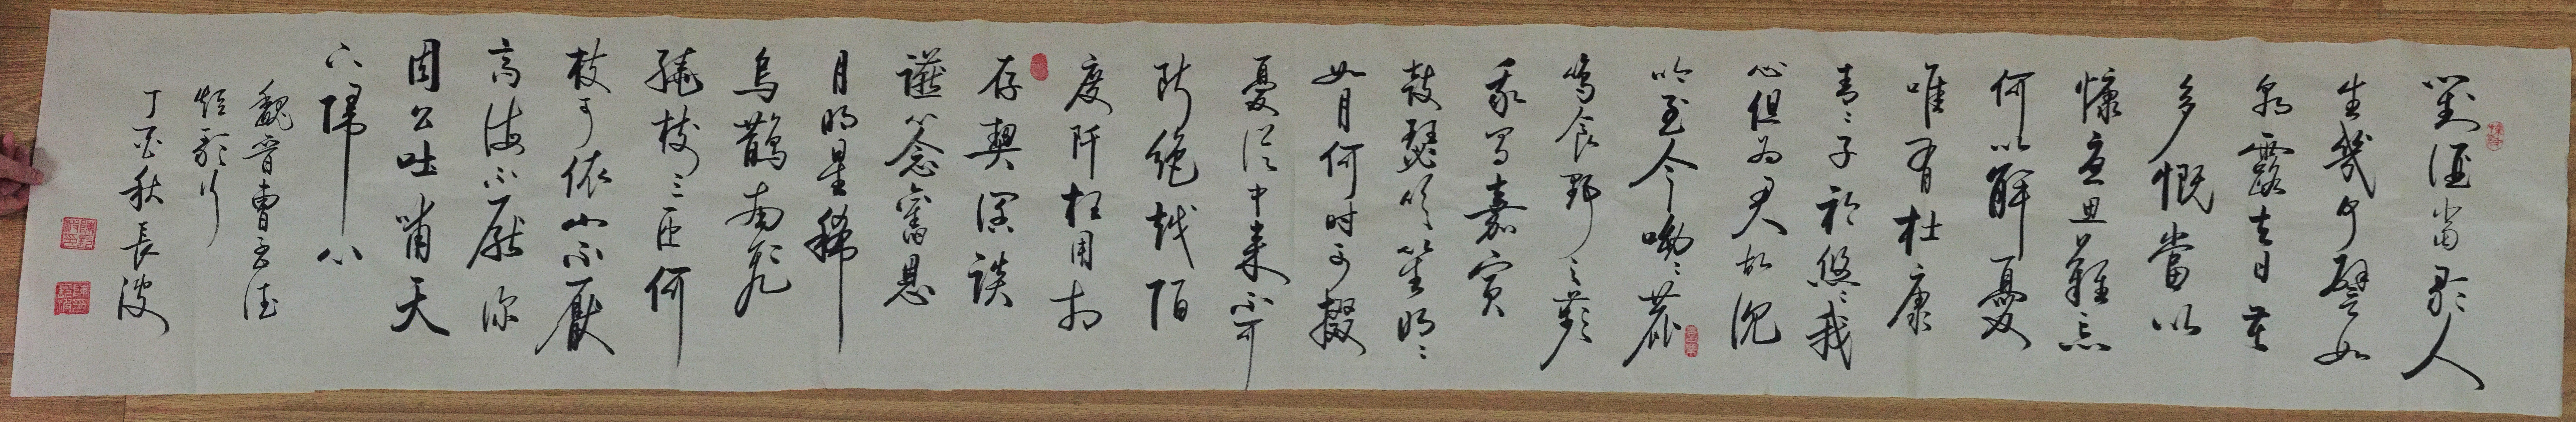 對酒当歌人
生幾何譬如
朝露去日苦
多慨當以
慷憂思難忘
何以解憂
唯有杜康
青〻子衿悠〻我
心但为君故沈
吟至今呦〻鹿
鳴食野之蘋
我有嘉賓
鼓瑟吹笙明〻
如月何时可掇
憂從中來不可
斷絶越陌
度阡枉用相
存契濶談
讌心念舊恩
月明星稀
烏鵲南飛
繞樹三匝何
枝可依山不厭
高海不厭深
周公吐哺天
下歸心
魏晉曹孟德
短歌行
丁酉秋長波